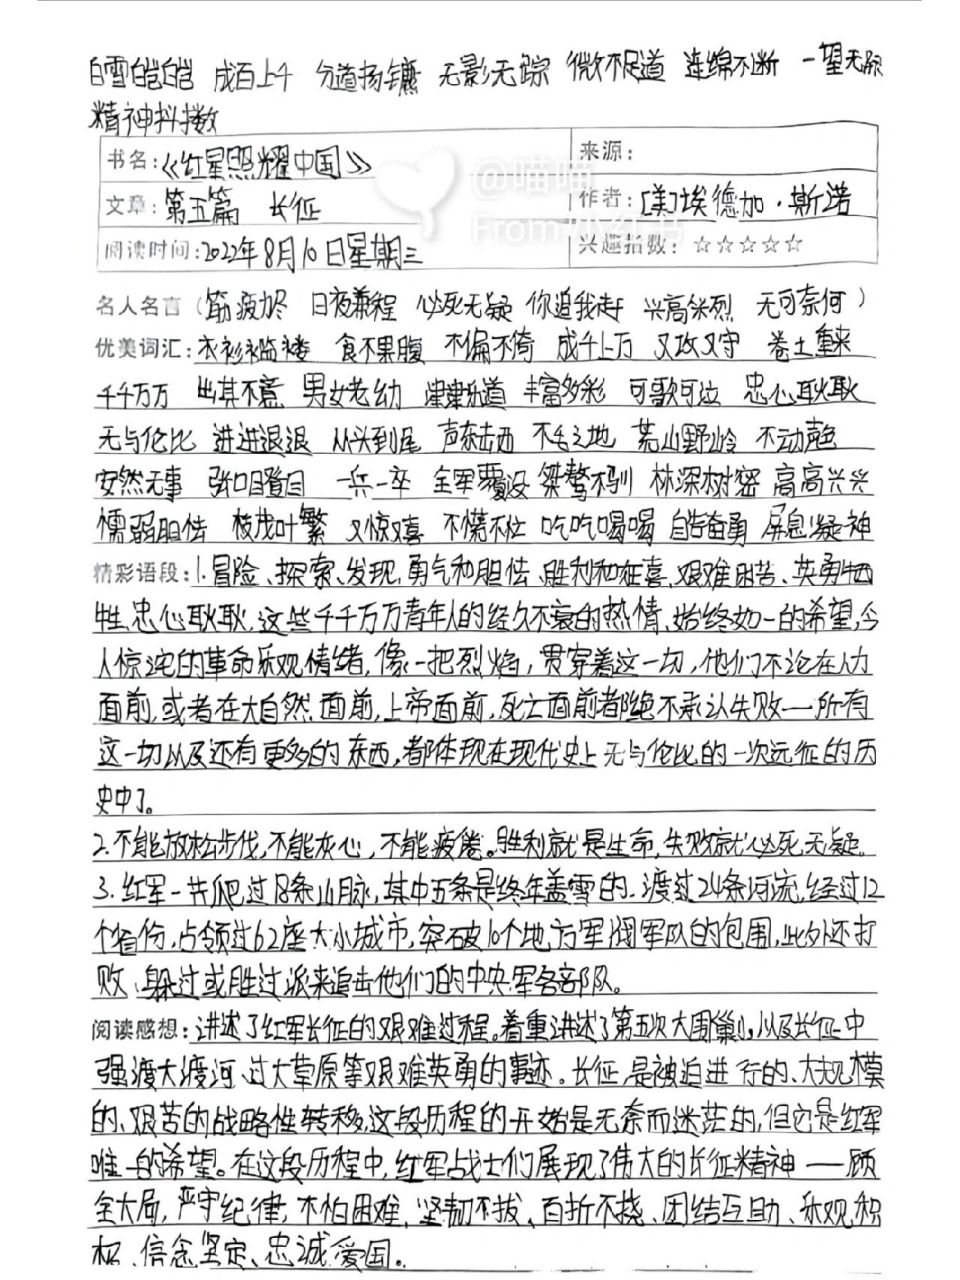 白雪皑皑 成百上千 分道扬镳 无影无踪 微不足道 连绵不断 一望无际
精神抖擞
书名：《红星照耀中国》 来源：
@喵喵
文章：第五篇 长征 作者：[美]埃德加·斯诺
From 小红书
阅读时间：2022年8月10日星期三 兴趣指数：☆☆☆☆☆
名人名言（筋疲力尽 日夜兼程 必死无疑 你追我赶 兴高采烈 无可奈何）
优美词汇：衣衫褴褛 食不果腹 不偏不倚 成千上万 又攻又守 卷土重来
千千万万 出其不意 男女老幼 津津乐道 丰富多彩 可歌可泣 忠心耿耿
无与伦比 进进退退 从头到尾 声东击西 不毛之地 荒山野岭 不动声色
安然无事 张口瞪目 一兵一卒 全军覆没 桀骜不驯 林深树密 高高兴兴
懦弱胆怯 枝茂叶繁 又惊又喜 不慌不忙 吃吃喝喝 自告奋勇 屏息凝神
精彩语段：1.冒险、探索、发现、勇气和胆怯、胜利和狂喜、艰难困苦、英勇牺
牲、忠心耿耿，这些千千万万青年人的经久不衰的热情、始终如一的希望，令
人惊诧的革命乐观情绪，像一把烈焰，贯穿着这一切，他们不论在人力
面前，或者在大自然面前，上帝面前，死亡面前都绝不承认失败——所有
这一切以及还有更多的东西，都体现在现代史上无与伦比的一次远征的历
史中了。
2.不能放松步伐，不能灰心，不能疲倦。胜利就是生命，失败就必死无疑。
3.红军一共爬过18条山脉，其中五条是终年盖雪的，渡过24条河流，经过12
个省份，占领过62座大小城市，突破10个地方军阀军队的包围，此外还打
败、躲过或胜过派来追击他们的中央军各部队。
阅读感想：讲述了红军长征的艰难过程。着重讲述了第五次大围剿，以及长征中
强渡大渡河、过大草原等艰难英勇的事迹。长征是被迫进行的、大规模
的、艰苦的战略性转移，这段历程的开始是无奈而迷茫的，但它是红军
唯一的希望。在这段历程中，红军战士们展现了伟大的长征精神——顾
全大局，严守纪律，不怕困难、坚韧不拔、百折不挠、团结互助、乐观积
极、信念坚定、忠诚爱国。